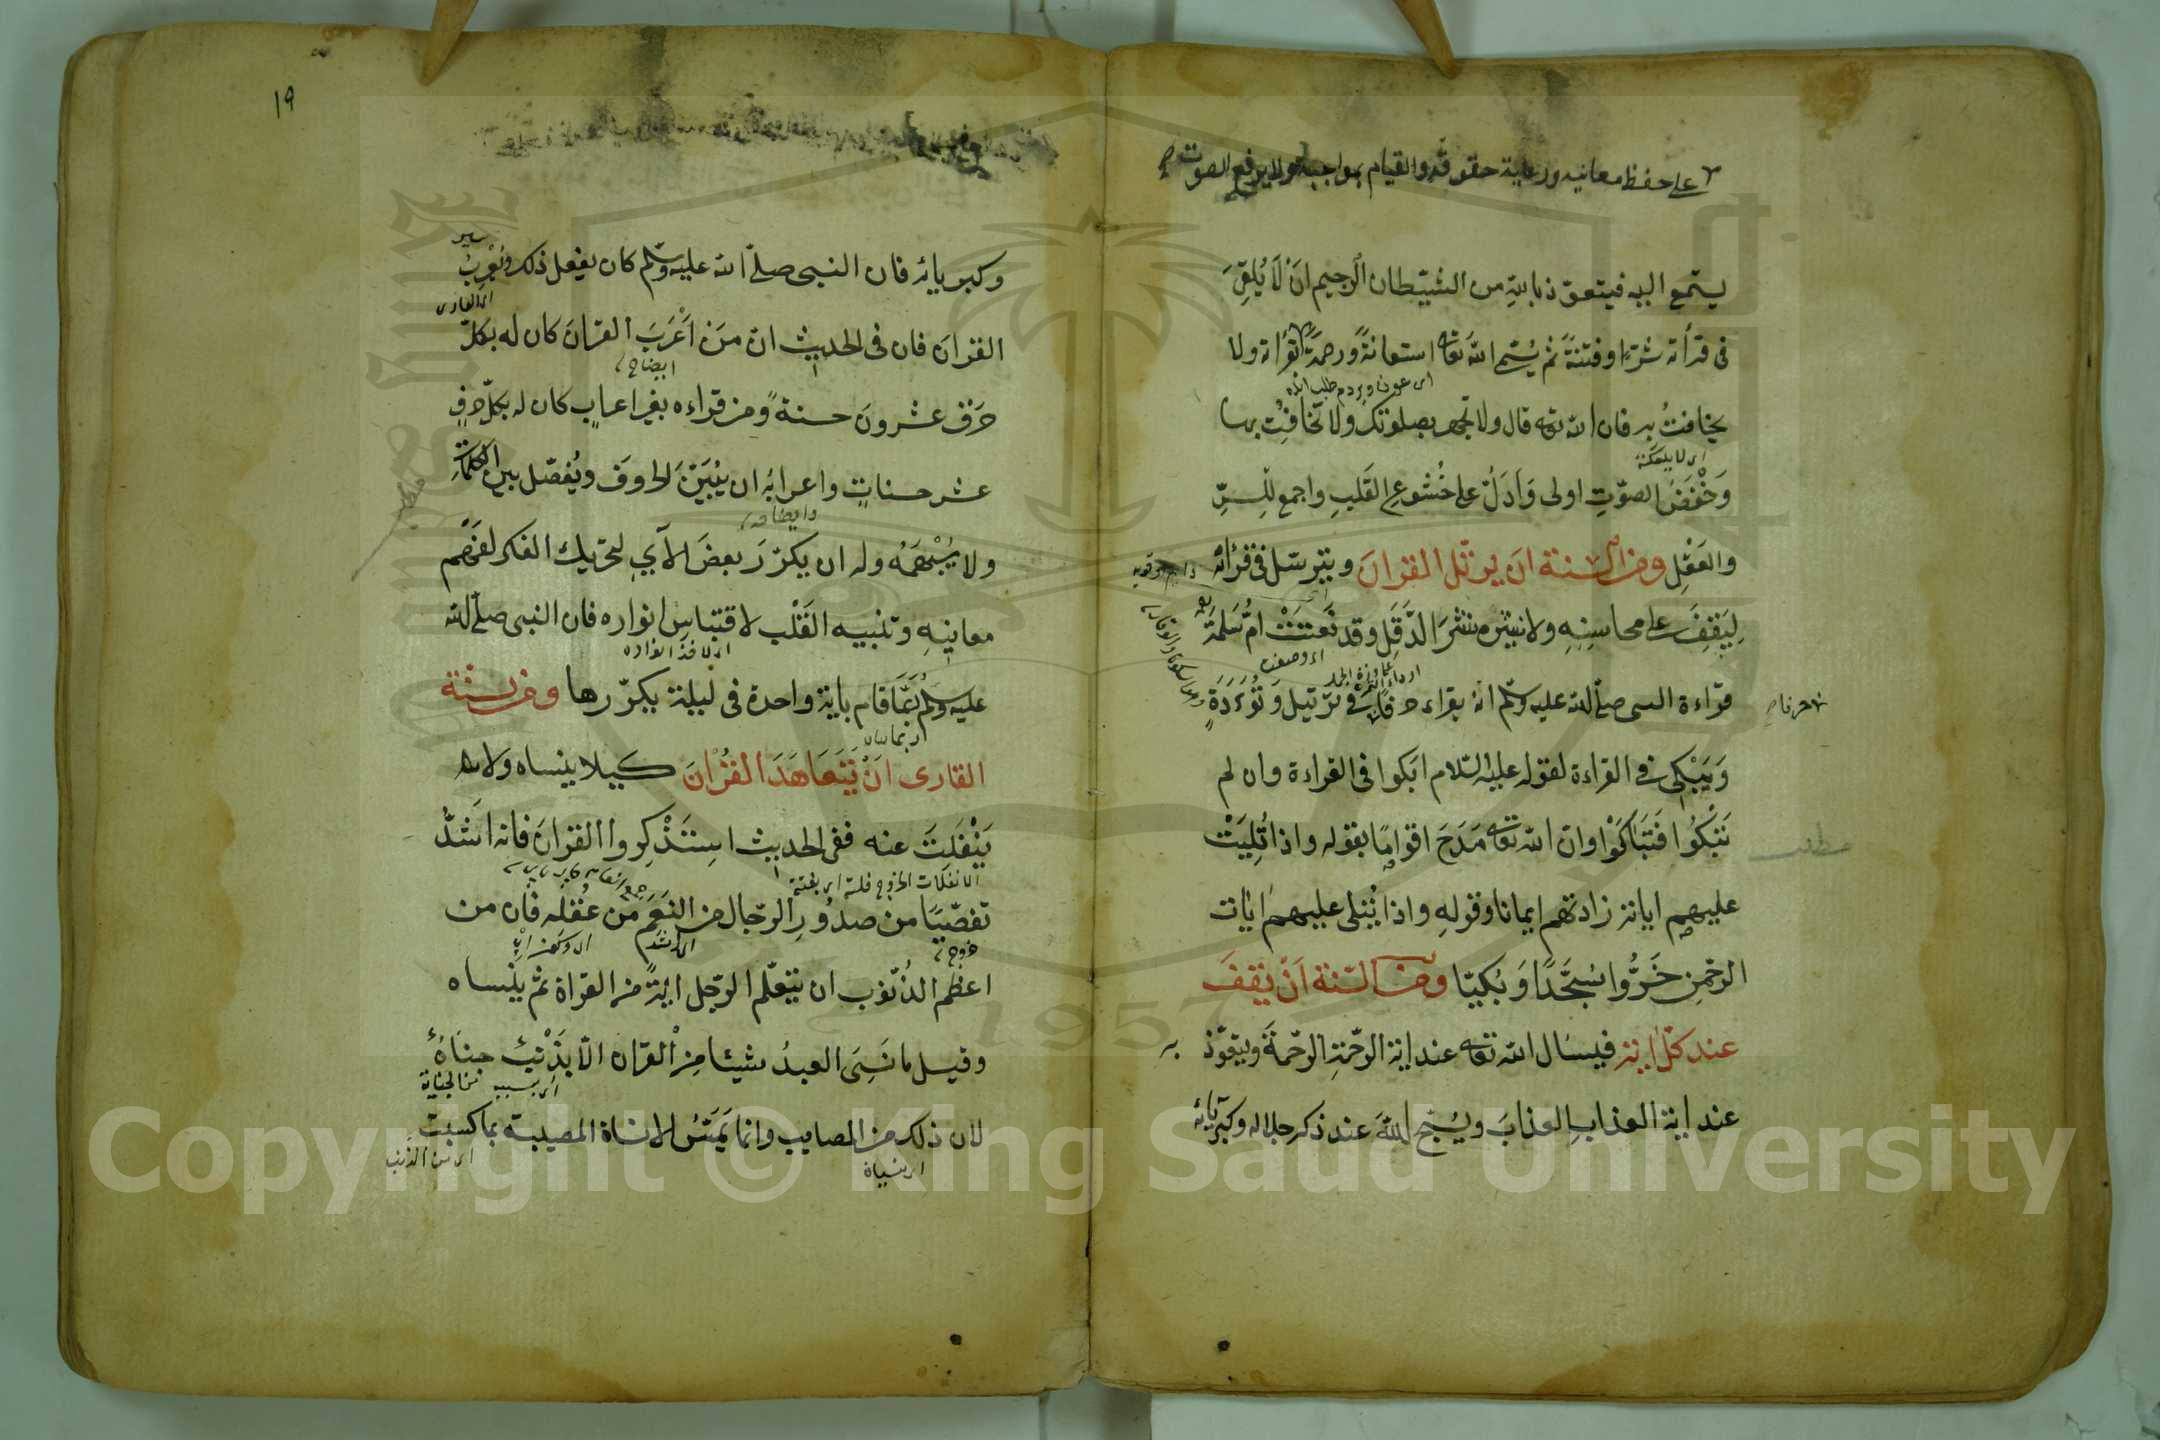 على حفظ معانيه ورعاية حقوقه والقيام بمواجبه ولا يرفع الصوت
يستمع اليه فيتعوّذ بالله من الشيطان الرجيم ان لا يُلقِىَ
فى قرأته شرّا وفتنةً ثم يُسمّى الله تعالى استعانةً ورحمةً لقرأته ولا
يخافتُ به فان الله تعالى قال ولا تجهر بصلوتك ولا تخافِت بها
اى لا يلحقنه
وَخَفْضُ الصوّتِ اولى وَاَدَلُّ على خُشوع القَلبِ واجمع للسِرّ
والعَقْلِ ومن السنة ان يرتّل القرانَ ويترسّل فى قرأته
لِيَقِفَ على محاسِنِهِ ولا ينثره نثرَ الدَّقَلِ وقد نَعتَتْ امُّ سَلمَة
قرّاءة النبى صلّى الله عليه وسلّم انه يقراء حرفًا فى ترتيل وَتُؤَدَةٍ
حرفا صح
وَيَبْكِى فى القراءة لقوله عليه السّلام ابكوا فى القراءة وان لم
تَبْكُوا فَتَبَاكَوْا وان الله تعالى مَدَحَ اقوامًا بقوله واذا تُلِيَتْ
مطلب
عليهم اياته زادتهم ايمانا وقولهِ واذا تُتلى عليهم ايات
الرحمنِ خَرُّوا سُجَّدًا وَبُكيّا ومن السّنة اَنْ يَقِفَ
عند كلّ اية فيسال الله تعالى عند اية الرحمّةِ الرحمّةَ ويتعوّذ به
عند اية العذابِ العذابَ ويُسبّح اللهَ عند ذكر جلاله وكبريائه
١٩
وكبريائه فان النبى صلّى الله عليه وسلّم كان يفعل ذلك ويُعْرِبُ
اى القارى
القرانَ فان فى الحديث انّ مَنْ اَعْرَبَ القرانَ كان له بكلّ
ايضاح
حَرْف عشرونَ حسنةً ومن قراءه بغير اعرابٍ كان له بكلّ حرفٍ
عشر حسناتٍ واعرابُه ان يُبَيّنَ الحروفَ ويُفصّل بين الكلمات
ولا يُبْهِمَهُ وله ان يكرّرَ بعضَ الآي لتحريك الفكر لفهم
معانيهِ وتنبيه القَلْب لاقتباسِ انواره فان النبى صلّى الله
اى لاخذ انواره
عليه وسلم رُبَّمَا قام باية واحدة فى ليلة يكرّرها ومن سنة
القارى انْ يَتَعَاهَدَ القُرْانَ كيلا ينساه ولا
يَنْفَلِتَ عنه ففى الحديث استَذْكِروا القرانَ فانه اشَدُّ
الانفلات الخروج فلتة اى بغتة
تفصّيًا من صدُورِ الرّجال من النَعَم من عُقُله فان من
خروج
اعظم الذُنوب ان يتعلّم الرّجل ايةً من القراة ثم ينساه
وقيل ما نَسِىَ العبدُ شيئا مِن القران الّا بذَنْبٍ جناهُ
اى بسبب من الجناية
لان ذلك من المصايب وانما يَمَسّ الانساة المصيبة بما كسبت
اى نسياة
اى من الذنب
Copyright © King Saud University
1957